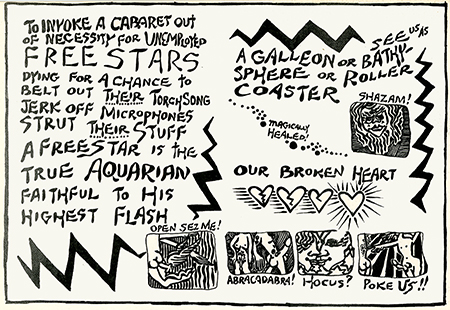 TO INVOKE A CABARET OUT
OF NECESSITY FOR UNEMPLOYED
FREE STARS
DYING FOR A CHANCE TO
BELT OUT THEIR TORCHSONG
JERK OFF MICROPHONES
STRUT THEIR STUFF
A FREE STAR IS THE
TRUE AQUARIAN
FAITHFUL TO HIS
HIGHEST FLASH
SEE US AS
A GALLEON OR BATHY-
SPHERE OR ROLLER
COASTER
SHAZAM!
MAGICALLY
HEALED!
OUR BROKEN HEART
OPEN SEZ ME!
ABRACADABRA!
HOCUS?
POKE US!!